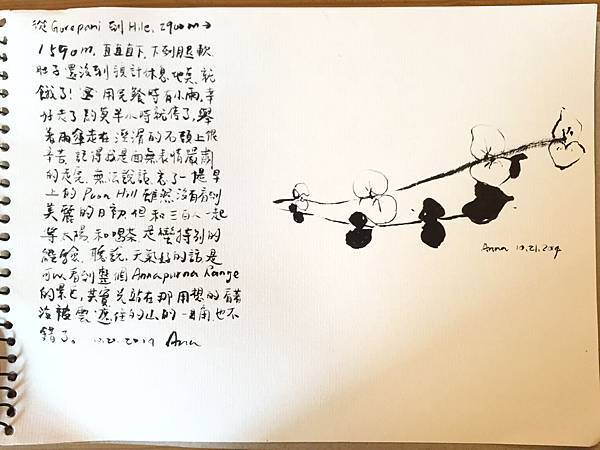 從Gorepani到Hile, 2900m→
1590m, 直直直下, 下到腿軟
肚子還沒到設計休息地點就
餓了! 用完餐時有小雨, 幸
好走了約莫半小時就停了, 舉
著雨傘走在溼滑的石頭上很
辛苦, 記得我是面無表情嚴肅
的走完, 無法說話, 忘了提早
上的Poon Hill 雖然沒有看到
美麗的日初但和三百人一起
等太陽和喝茶是蠻特別的
經驗, 聽說, 天氣好的話是
可以看到整個Annapurna Range
的景色, 其實光站在那用想的看著
沒被雲遮住的山的一角也不
錯了。 10.21.2014 Ana
Anna 10.21.2014